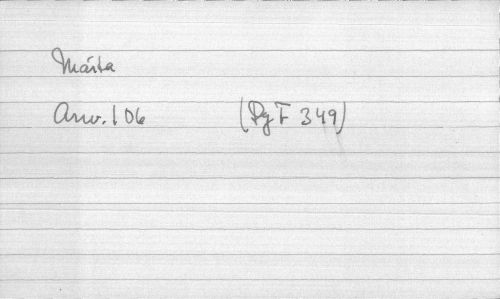 Márta
Anv. 106 (Pg F 349)